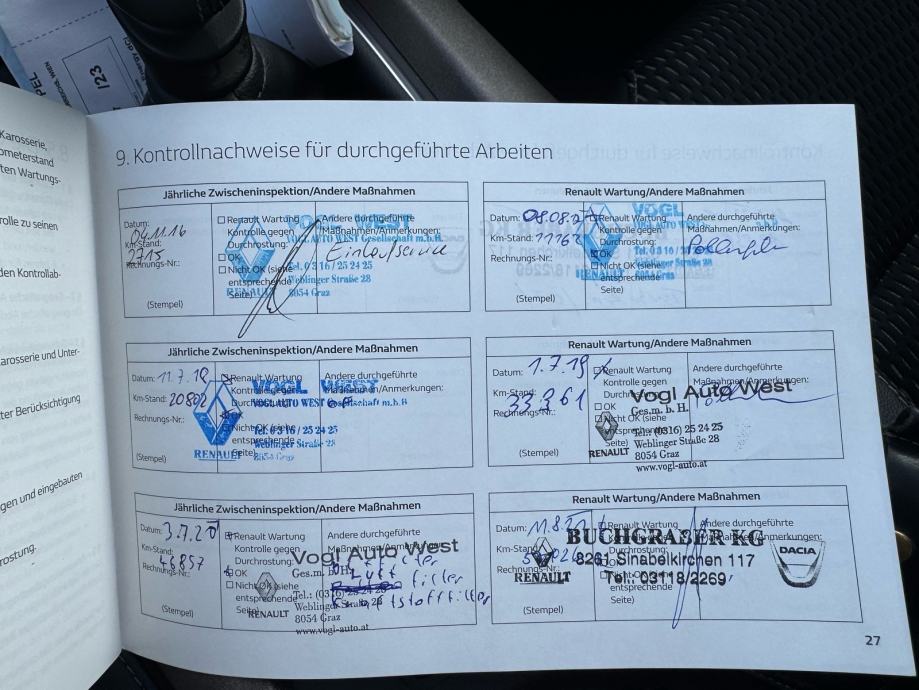 PEL
/23
Karosserie,
ometerstand
ten Wartungs-
rolle zu seinen
den Kontrollab-
arosserie und Unter-
ter Berücksichtigung
gen und eingebauten
rostung.
9. Kontrollnachweise für durchgeführte Arbeiten
Jährliche Zwischeninspektion/Andere Maßnahmen
Datum: 04.11.16
Km-Stand: 2715
Rechnungs-Nr.:
(Stempel)
Renault Wartung
Kontrolle gegen
Durchrostung:
OK
Nicht OK (siehe
entsprechende
Seite)
Andere durchgeführte
Maßnahmen/Anmerkungen:
Einlaufservice
VOGL WEST
VOGL AUTO WEST Gesellschaft m.b.H.
Tel. 0 3 16 / 25 24 25
Weblinger Straße 28
8054 Graz
RENAULT
Renault Wartung/Andere Maßnahmen
Datum: 08.08.
Km-Stand: 11162
Rechnungs-Nr.:
(Stempel)
Renault Wartung
Kontrolle gegen
Durchrostung:
OK
Nicht OK (siehe
entsprechende
Seite)
Andere durchgeführte
Maßnahmen/Anmerkungen:
VOGL
Tel. 0 3 16 /
Weblinger Straße
8054 Graz
RENAULT
Jährliche Zwischeninspektion/Andere Maßnahmen
Datum: 11.7.18
Km-Stand: 20802
Rechnungs-Nr.:
(Stempel)
Renault Wartung
Kontrolle gegen
Durchrostung:
OK
Nicht OK (siehe
entsprechende
Seite)
Andere durchgeführte
Maßnahmen/Anmerkungen:
VOGL WEST
VOGL AUTO WEST Gesellschaft m.b.H
Tel. 0 3 16 / 25 24 25
Weblinger Straße 28
8054 Graz
RENAULT
Renault Wartung/Andere Maßnahmen
Datum: 1.7.19
Km-Stand: 33.361
Rechnungs-Nr.:
(Stempel)
Renault Wartung
Kontrolle gegen
Durchrostung:
OK
Nicht OK (siehe
entsprechende
Seite)
Andere durchgeführte
Maßnahmen/Anmerkungen:
Vogl Auto West
Ges.m. b. H.
Tel.: (0316) 25 24 25
Weblinger Straße 28
8054 Graz
www.vogl-auto.at
RENAULT
Jährliche Zwischeninspektion/Andere Maßnahmen
Datum: 3.7.20
Km-Stand: 46857
Rechnungs-Nr.:
(Stempel)
Renault Wartung
Kontrolle gegen
Durchrostung:
OK
Nicht OK (siehe
entsprechende
Seite)
Andere durchgeführte
Maßnahmen/Anmerkungen:
Luft filter
Kraftstofffilter
Vogl Auto West
Ges.m. b. H.
Tel.: (0316) 25 24 25
Weblinger Straße 28
8054 Graz
www.vogl-auto.at
RENAULT
Renault Wartung/Andere Maßnahmen
Datum: 11.8.21
Km-Stand:
Rechnungs-Nr.:
(Stempel)
Renault Wartung
Kontrolle gegen
Durchrostung:
OK
Nicht OK (siehe
entsprechende
Seite)
Andere durchgeführte
Maßnahmen/Anmerkungen:
BUCHGRABER KG
8261 Sinabelkirchen 117
Tel.: 03118/2269
RENAULT
DACIA
27